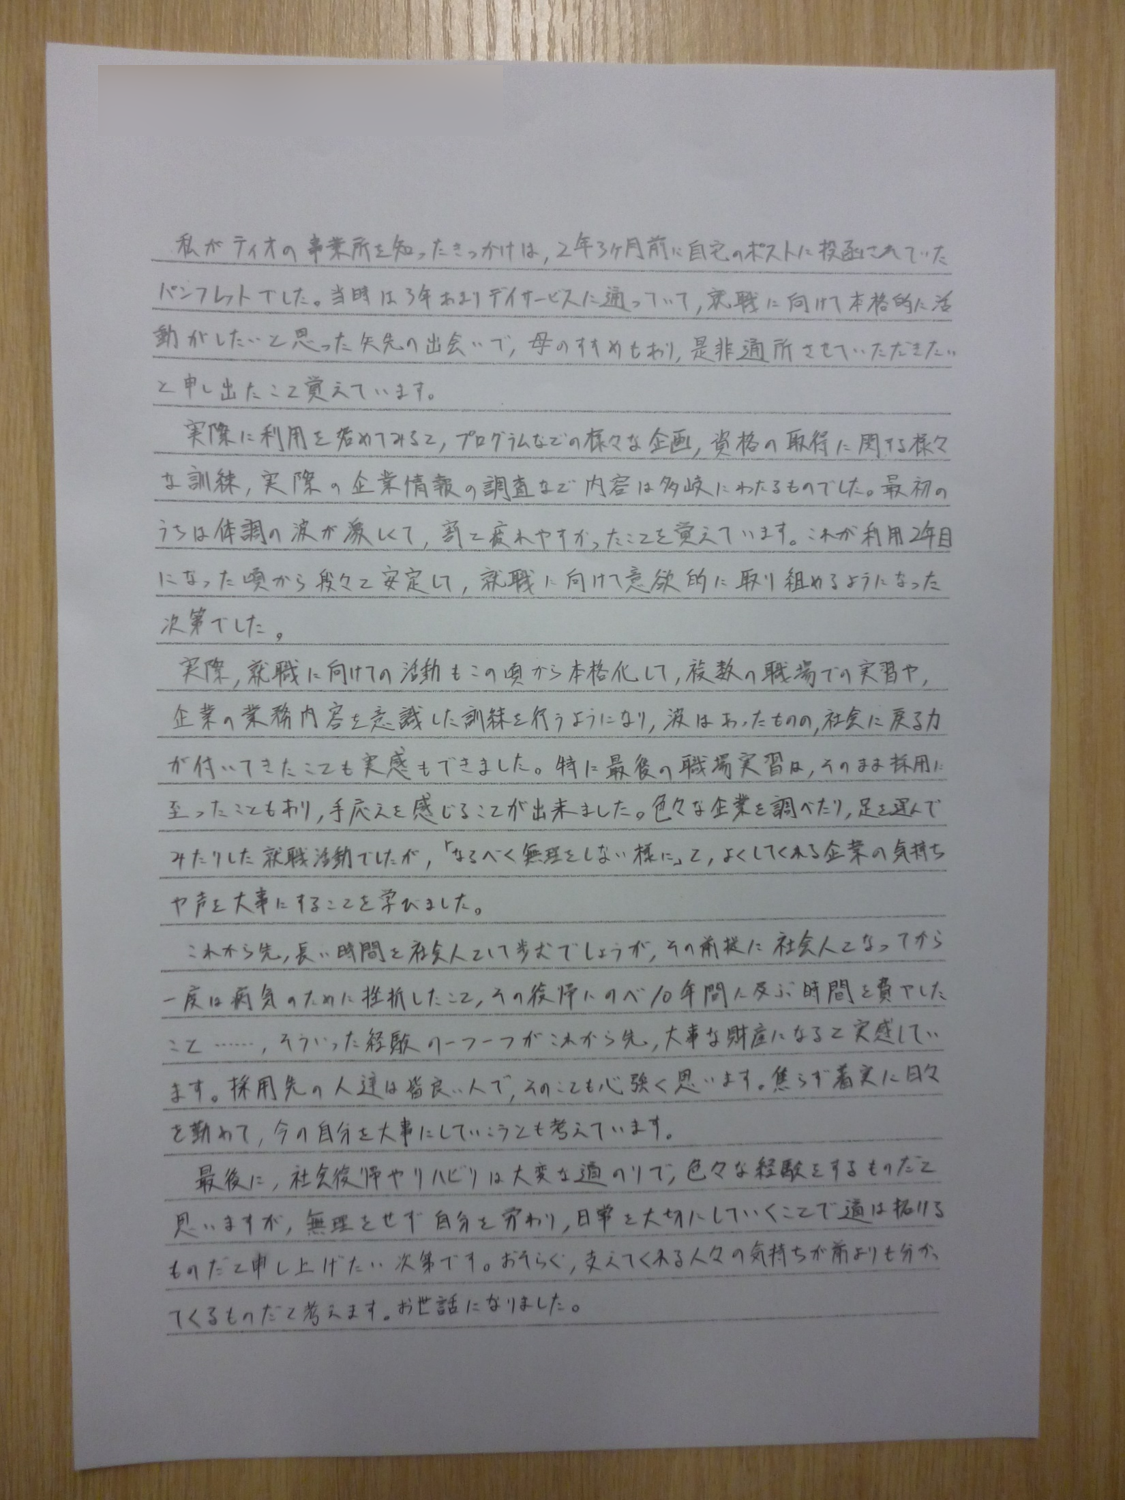 私がティオの事業所を知ったきっかけは，2年3ヶ月前に自宅のポストに投函されていた
パンフレットでした。当時は3年あまりデイサービスに通っていて，就職に向けて本格的に活
動がしたいと思った矢先の出会いで，母のすすめもあり，是非通所させていただきたい
と申し出たこと覚えています。
実際に利用を始めてみると，プログラムなどの様々な企画，資格の取得に関する様々
な訓練，実際の企業情報の調査など内容は多岐にわたるものでした。最初の
うちは体調の波が激しくて，割と疲れやすかったことを覚えています。これが利用2年目
になった頃から段々と安定して，就職に向けて意欲的に取り組めるようになった
次第でした。
実際，就職に向けての活動もこの頃から本格化して，複数の職場での実習や，
企業の業務内容を意識した訓練を行うようになり，波はあったものの，社会に戻る力
が付いてきたことも実感もできました。特に最後の職場実習は，そのまま採用に
至ったこともあり，手応えを感じることが出来ました。色々な企業を調べたり，足を運んで
みたりした就職活動でしたが，「なるべく無理をしない様に」と，よくしてくれる企業の気持ち
や声を大事にすることを学びました。
これから先，長い時間を社会人として歩むでしょうが，その前提に社会人となってから
一度は病気のために挫折したこと，その復帰にのべ10年間に及ぶ時間を費やした
こと……，そういった経験の一つ一つがこれから先，大事な財産になると実感してい
ます。採用先の人達は皆良い人で，そのことも心強く思います。焦らず着実に日々
を勤めて，今の自分を大事にしていこうとも考えています。
最後に，社会復帰やリハビリは大変な道のりで，色々な経験をするものだと
思いますが，無理をせず自分を労わり，日常を大切にしていくことで道は拓ける
ものだと申し上げたい次第です。おそらく，支えてくれる人々の気持ちが前よりも分かっ
てくるものだと考えます。お世話になりました。